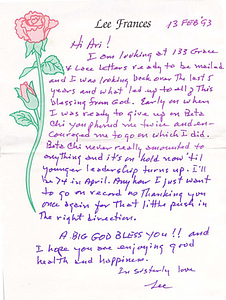 Lee Frances
13 FEB '93
Hi Ari!
I am looking at 133 Grace
& Love Letters ready to be mailed
and I was looking back over the last 5
years and what led up to all this
blessing from God. Early on when
I was ready to give up on Beta
Chi you phoned me twice and en-
couraged me to go on which I did.
Beta Chi never really amounted to
anything and it's on 'hold now 'til
younger leadership turns up. I'll
be 74 in April. Anyhow I just want
to go on record as thanking you
once again for that little push in
the right direction.
A BIG GOD BLESS YOU!! and
I hope you are enjoying good
health and happiness.
In sisterly love
Lee